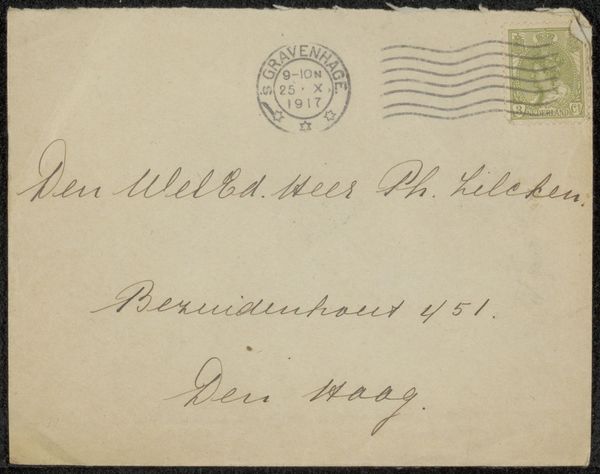 's GRAVENHAGE.
9-10N
25 · X
1917
3 NEDERLAND Ct
Den WelEd. Heer Ph. Zilcken.
Bezuidenhout 451.
Den Haag.